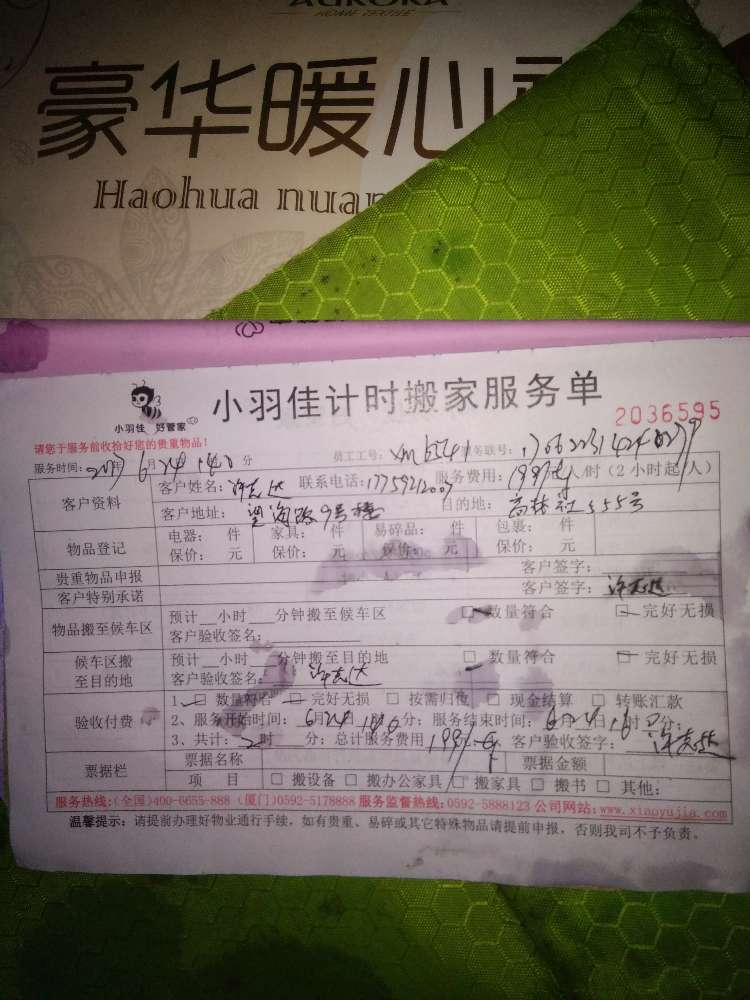 AURORA
HOME TEXTILE
豪华暖心
Haohua nuan
小羽佳 好管家
小羽佳计时搬家服务单
2036595
请您于服务前收拾好您的贵重物品!
服务时间: 2017年6月24 14:0 分 员工工号: 服务联号:
客户资料
客户姓名: 许志达 联系电话: 服务费用: 199元/人/时(2小时起/人)
客户地址: 望海路9号楼 目的地: 高林社555号
物品登记
电器: 件 家具: 件 易碎品: 件 包裹: 件
保价: 元 保价: 元 保价: 元 保价: 元
贵重物品申报 客户签字:
客户特别承诺 客户签字: 许志达
物品搬至候车区
预计__小时___分钟搬至候车区 □数量符合 □完好无损
客户验收签名:
候车区搬至目的地
预计__小时___分钟搬至目的地 □数量符合 □完好无损
客户验收签名: 许志达
验收付费
1、□数量符合 □完好无损 □按需归位 □现金结算 □转账汇款
2、服务开始时间: 6月24日 分; 服务结束时间: 6月24日16时 分;
3、共计: 2时 分; 总计服务费用 客户验收签字: 许志达
票据栏
票据名称 票据金额
项 目 □搬设备 □搬办公家具 □搬家具 □搬书 □其他:
服务热线:(全国)400-6655-888 (厦门)0592-5178888 服务监督热线:0592-5888123 公司网站:www.xiaoyujia.com
温馨提示:请提前办理好物业通行手续,如有贵重、易碎或其它特殊物品请提前申报,否则我司不予负责。